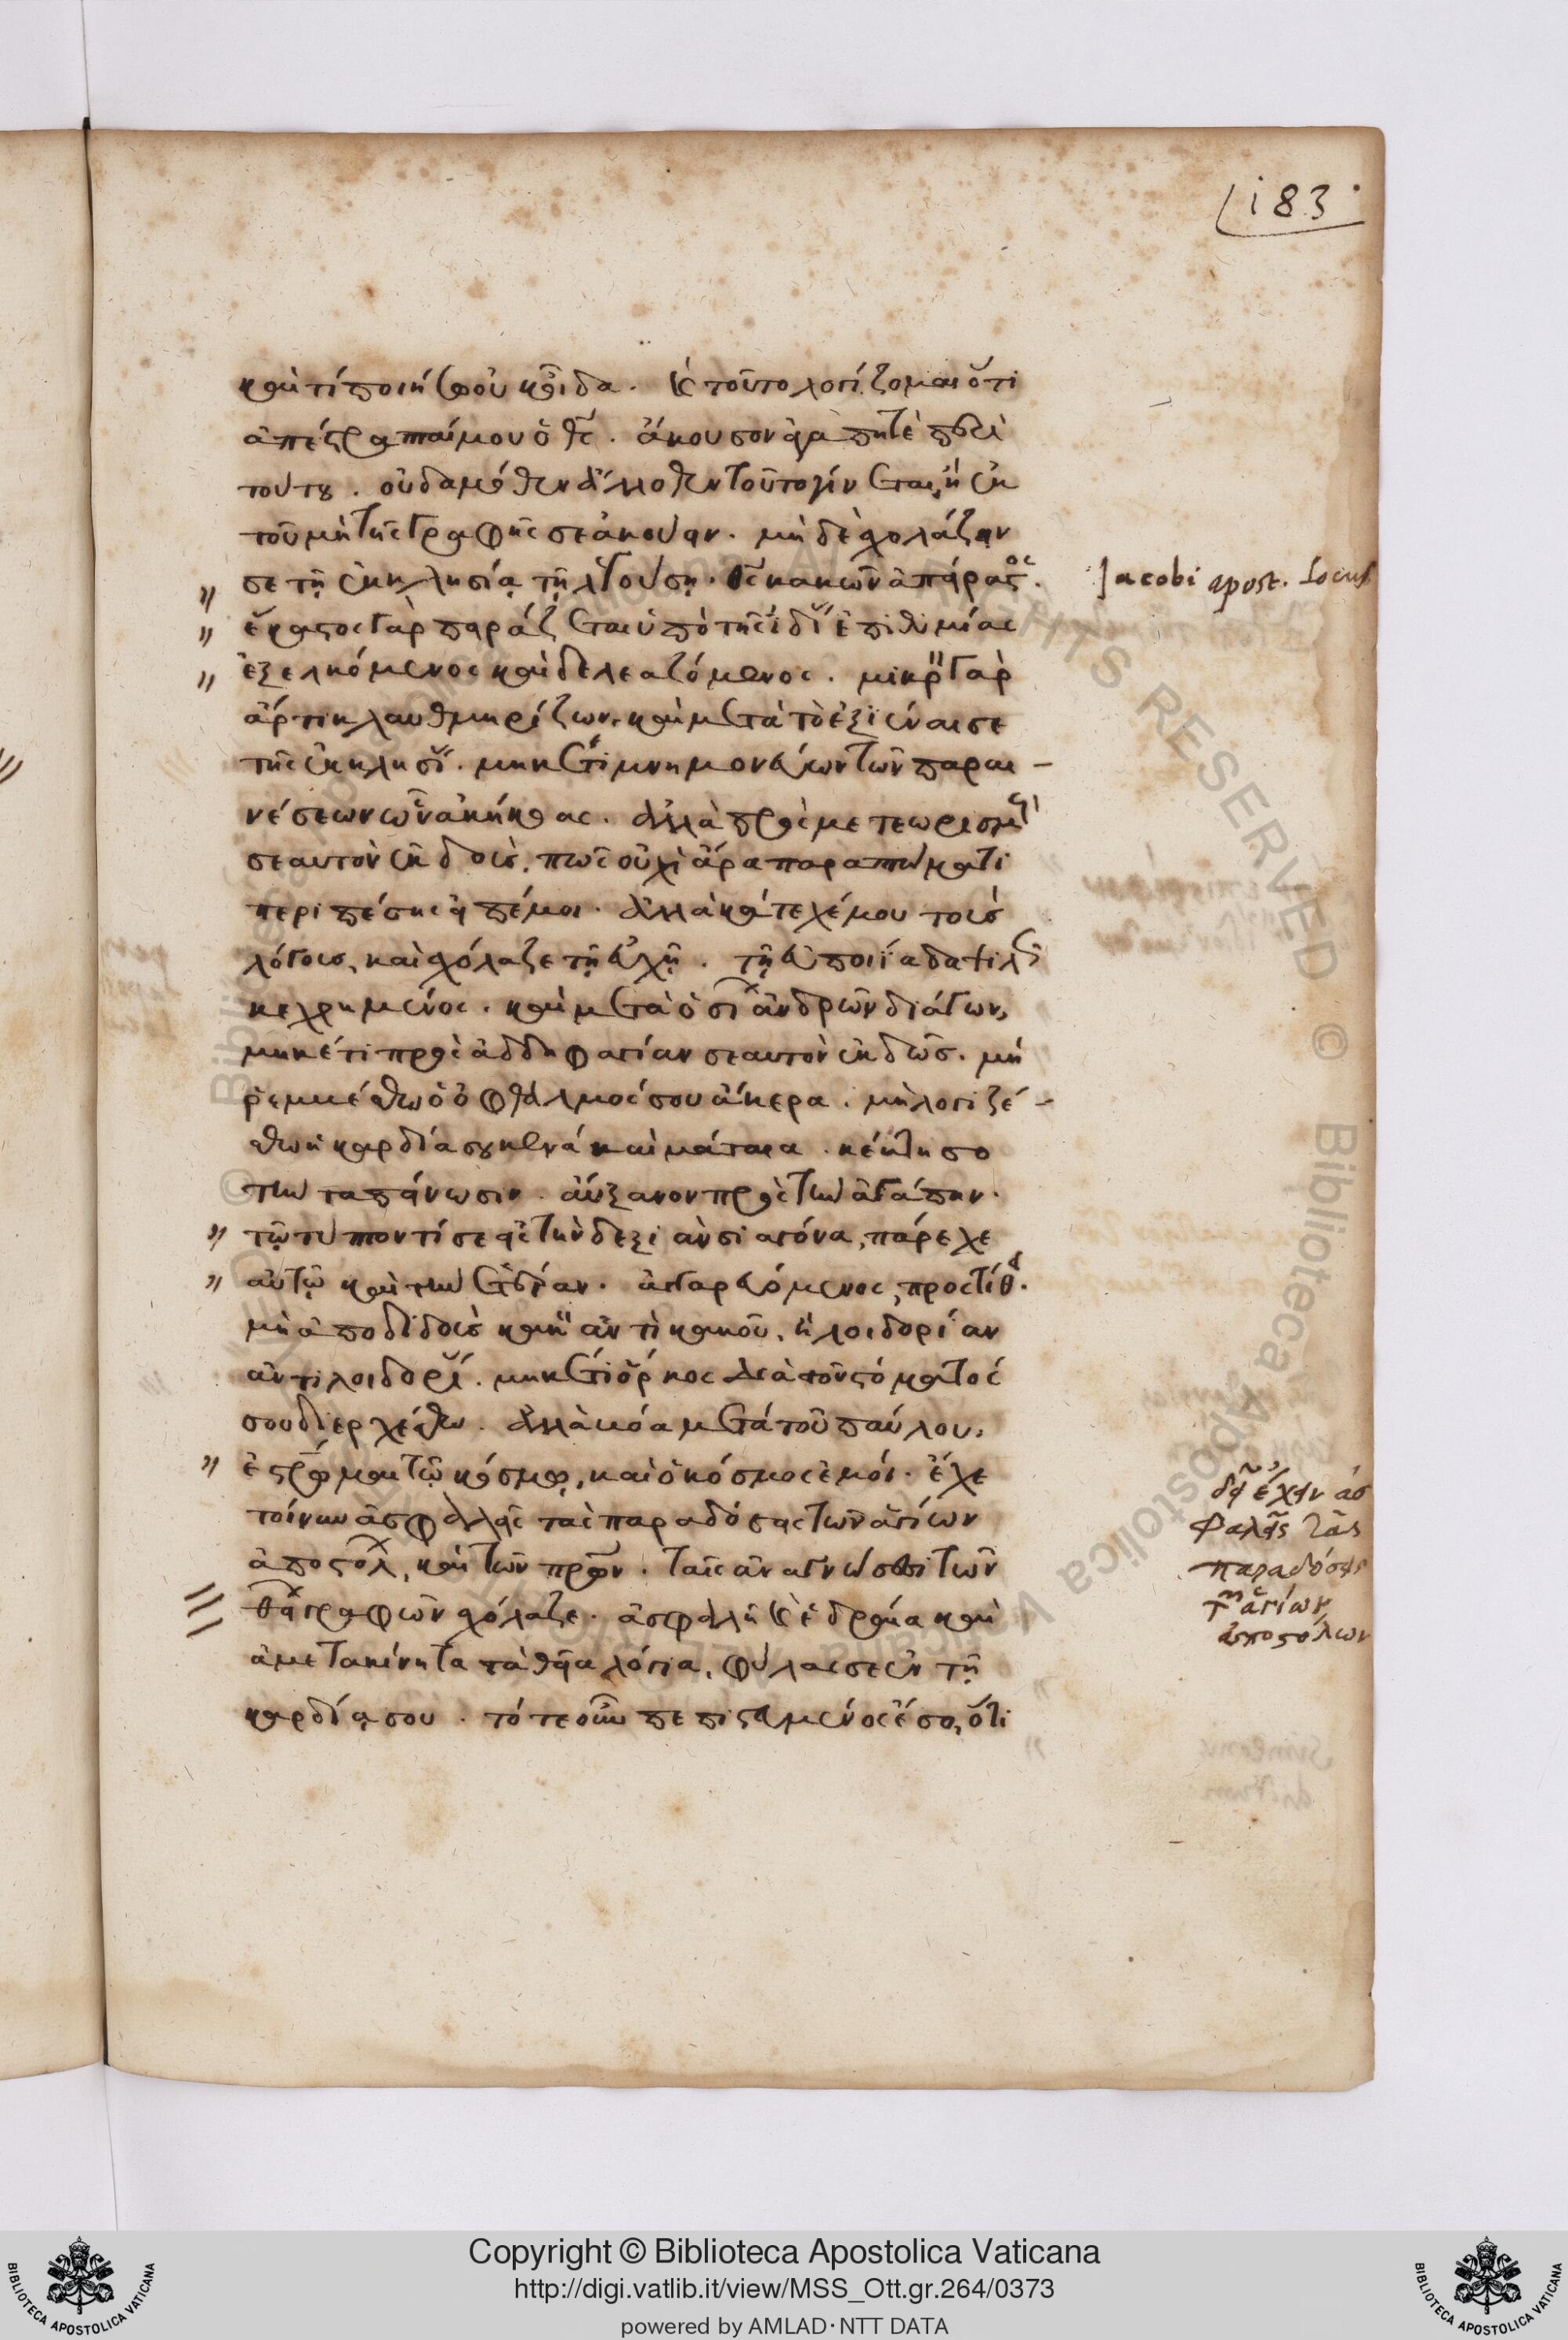 183
καὶ τί ποιήσω οὐκ οἶδα. καὶ τοῦτο λογίζομαι ὅτι
ἀπέστραπταί μου ὁ θς. ἄκουσον ἀγαπητὲ περὶ
τούτου. οὐδαμόθεν ἄλλοθεν τοῦτο γίνεται, ἢ ἐκ
τοῦ μὴ τῆς γραφῆς σε ἀκούειν. μὴ δὲ σχολάζειν
σε τῇ ἐκκλησίᾳ τῇ λεγούσῃ. θς κακῶν ἀπείραστος.
Jacobi apost. Locus
ἕκαστος γὰρ πειράζεται ὑπὸ τῆς ἰδίας ἐπιθυμίας
ἐξελκόμενος καὶ δελεαζόμενος. μικρὸν γὰρ
ἄρτι κλαυθμηρίζων, καὶ μετὰ τὸ ἐξιέναι σε
τῆς ἐκκλησίας. μηκέτι μνημονεύων τῶν παραι-
νέσεων ὧν ἀκήκοας. ἀλλὰ πρὸς μετεωρισμὸν
σεαυτὸν ἐκδοὺς. πῶς οὐχὶ ἄρα παραπτώματι
περιπέσῃς εἰπέ μοι. ἀλλὰ κατέχέ μου τοὺς
λόγους, καὶ σχόλαζε τῇ εὐχῇ. τῇ εὐποιίᾳ δαψιλῶς
κεχρημένος. καὶ μετὰ ὁσίων ἀνδρῶν διάγων,
μηκέτι πρὸς ἀδδηφαγίαν σεαυτὸν ἐκδῶς. μὴ
ῥεμβέσθω ὁ ὀφθαλμός σου ἄκερα. μὴ λογιζέ-
σθω ἡ καρδία σου κενὰ καὶ μάταια. κέκτησο
τὴν ταπείνωσιν. αὔξανον πρὸς τὴν ἀγάπην.
τῷ τύπτοντί σε εἰς τὴν δεξιὰν σιαγόνα, πάρεχε
αὐτῷ καὶ τὴν ἑτέραν. ἀγγαρευόμενος, προστίθει.
μὴ ἀποδίδους κακὸν ἀντὶ κακοῦ, ἢ λοιδορίαν
ἀντὶ λοιδορίας. μηκέτι ὅρκος διὰ τοῦ στόματός
σου διερχέσθω. ἀλλὰ βόα μετὰ τοῦ παύλου,
ἐσταύρωμαι τῷ κόσμῳ, καὶ ὁ κόσμος ἐμοί. ἔχε
τοίνυν ἀσφαλεῖς τὰς παραδόσεις τῶν ἁγίων
ἀποστόλων, καὶ τῶν πρων. ταῖς ἀναγνώσεσι τῶν
θείων γραφῶν σχόλαζε. ἀσφαλῆ καὶ ἑδραῖα καὶ
ἀμετακίνητα τὰ θεῖα λόγια, φύλασσε ἐν τῇ
καρδίᾳ σου. τότε οὖν πεπισταμένος ἔσο, ὅτι
δεῖ ἔχειν ἀσ
φαλεῖς τὰς
παραδόσεις
τῶν ἁγίων
ἀποστόλων
Copyright © Biblioteca Apostolica Vaticana
http://digi.vatlib.it/view/MSS_Ott.gr.264/0373
powered by AMLAD·NTT DATA
BIBLIOTECA APOSTOLICA VATICANA
BIBLIOTECA APOSTOLICA VATICANA